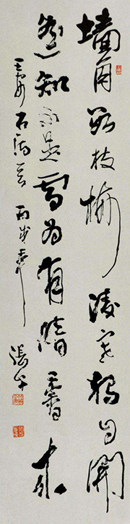 墙角数枝梅凌寒独自开
遥知不是雪为有暗香来
王安石诗